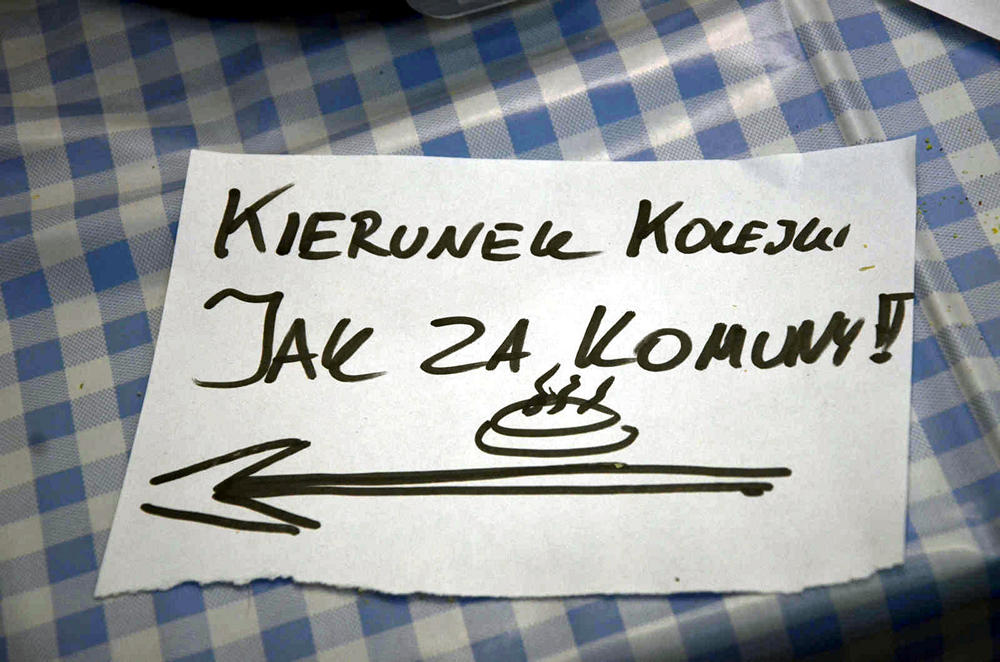 KIERUNEK KOLEJKI
JAK ZA KOMUNY!!